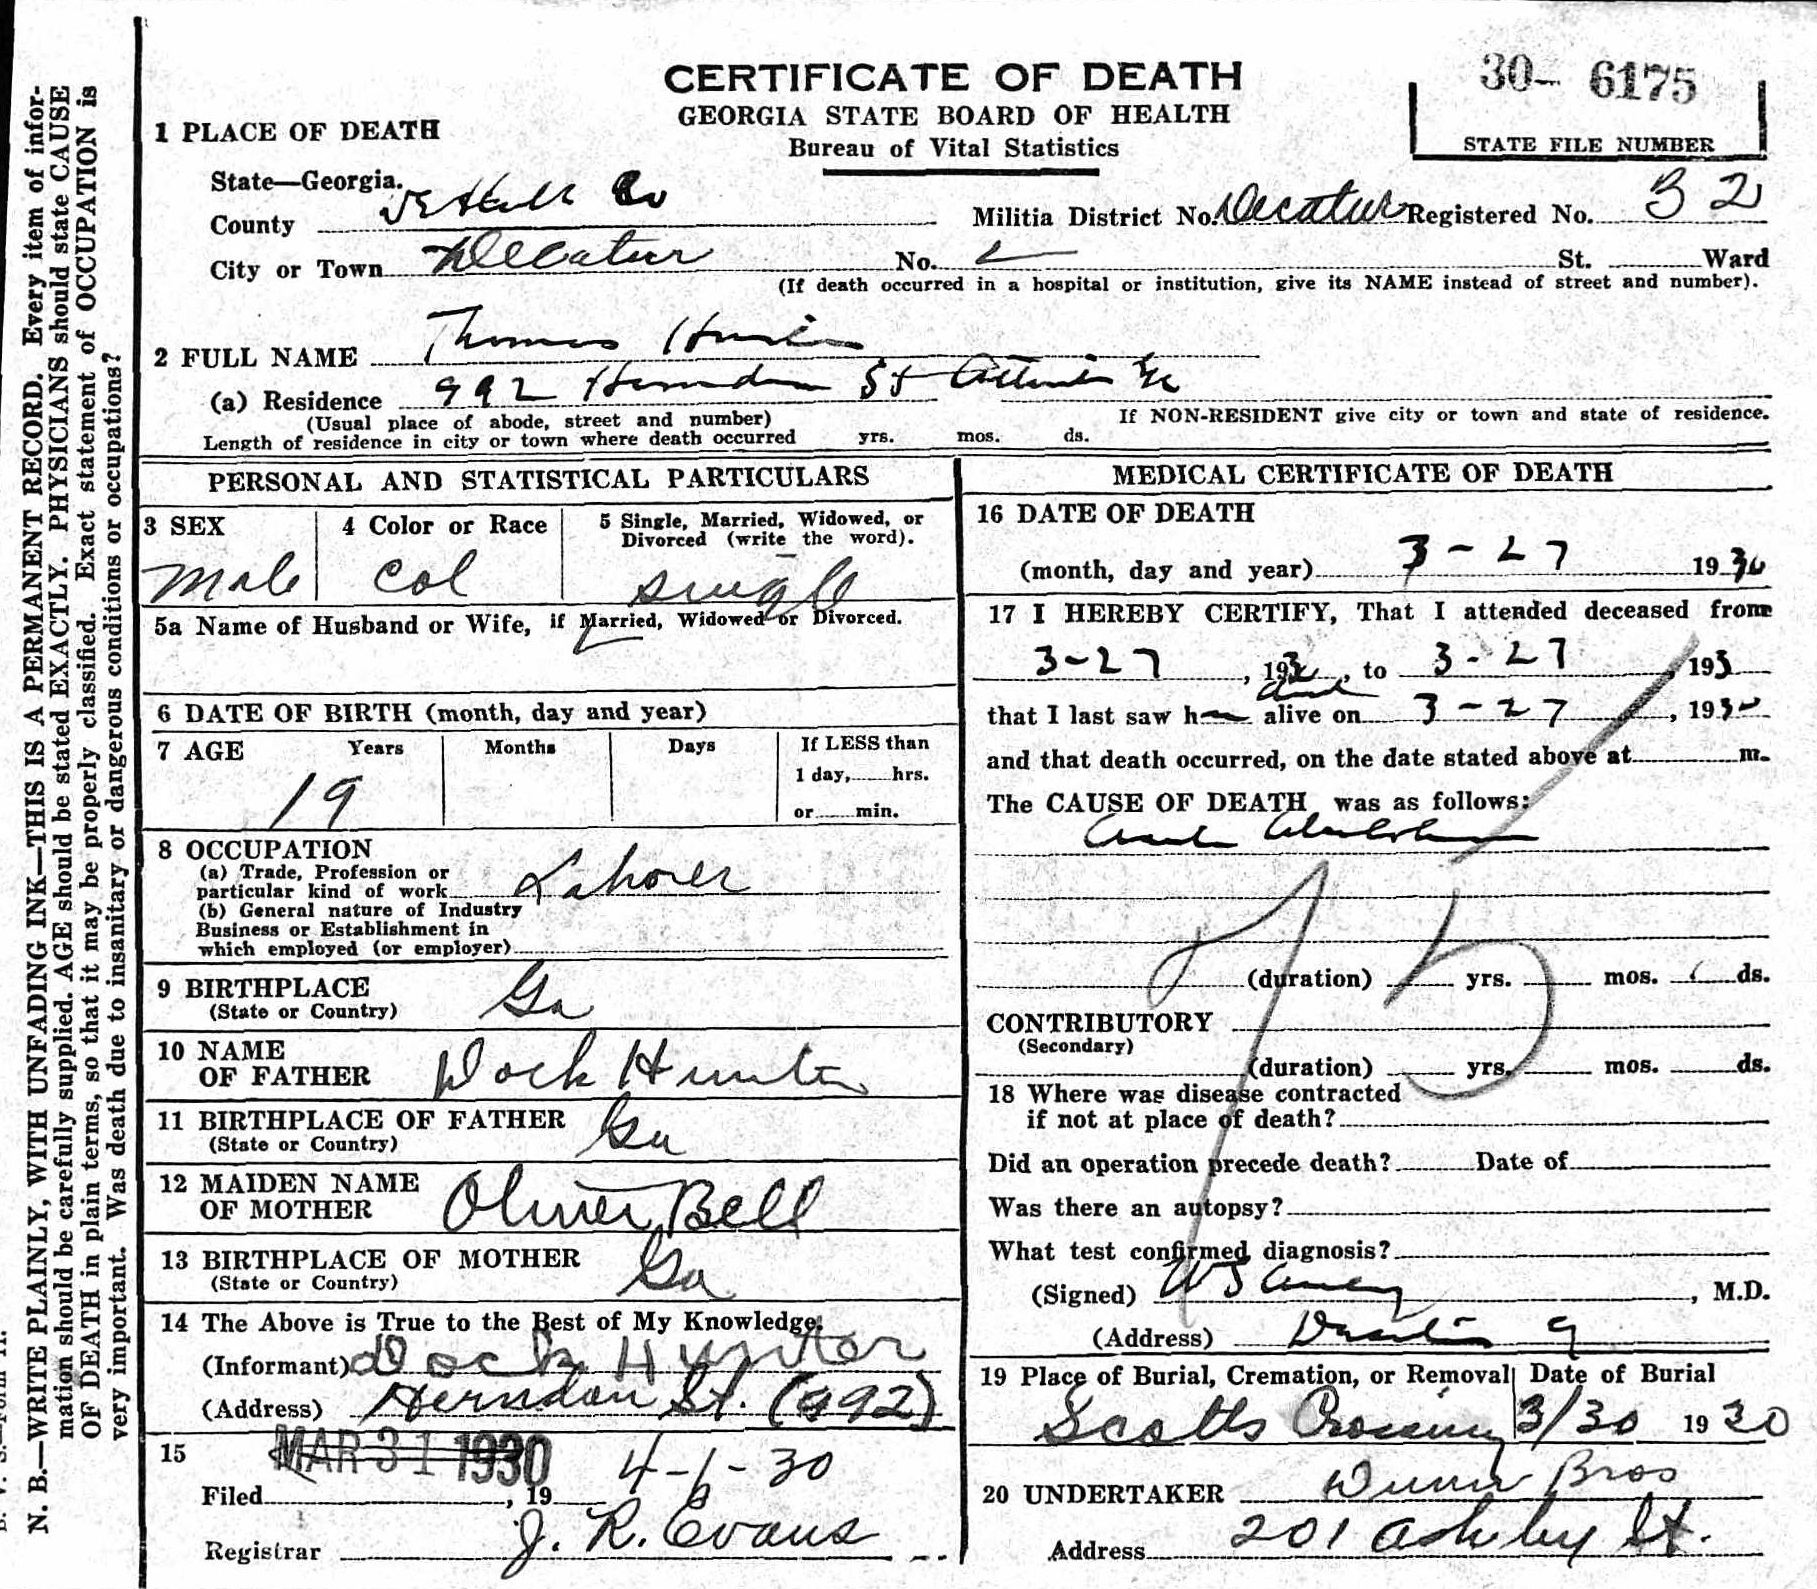 CERTIFICATE OF DEATH
GEORGIA STATE BOARD OF HEALTH
Bureau of Vital Statistics
30- 6175
STATE FILE NUMBER
1 PLACE OF DEATH
State—Georgia.
County DeKalb Co Militia District No. Decatur Registered No. 32
City or Town Decatur No. St. Ward
(If death occurred in a hospital or institution, give its NAME instead of street and number).
2 FULL NAME Thomas Hunter
(a) Residence 992 Herndon St Atlanta Ga
(Usual place of abode, street and number) If NON-RESIDENT give city or town and state of residence.
Length of residence in city or town where death occurred yrs. mos. ds.
PERSONAL AND STATISTICAL PARTICULARS
3 SEX 4 Color or Race 5 Single, Married, Widowed, or
Divorced (write the word).
Male Col Single
5a Name of Husband or Wife, if Married, Widowed or Divorced.
6 DATE OF BIRTH (month, day and year)
7 AGE Years Months Days If LESS than
1 day, hrs.
19
or min.
8 OCCUPATION
(a) Trade, Profession or
particular kind of work Laborer
(b) General nature of Industry
Business or Establishment in
which employed (or employer)
9 BIRTHPLACE Ga
(State or Country)
10 NAME
OF FATHER Dock Hunter
11 BIRTHPLACE OF FATHER Ga
(State or Country)
12 MAIDEN NAME
OF MOTHER Oliver Bell
13 BIRTHPLACE OF MOTHER Ga
(State or Country)
14 The Above is True to the Best of My Knowledge.
(Informant) Dock Hunter
(Address) Herndon St. (992)
15 MAR 31 1930 4-1-30
Filed , 19
Registrar J. R. Evans
MEDICAL CERTIFICATE OF DEATH
16 DATE OF DEATH
(month, day and year) 3-27 1930
17 I HEREBY CERTIFY, That I attended deceased from
3-27 , 193 , to 3-27 , 193
that I last saw h alive on 3-27 , 193
and that death occurred, on the date stated above at m.
The CAUSE OF DEATH was as follows:
75
(duration) yrs. mos. ds.
CONTRIBUTORY
(Secondary)
(duration) yrs. mos. ds.
18 Where was disease contracted
if not at place of death?
Did an operation precede death? Date of
Was there an autopsy?
What test confirmed diagnosis?
(Signed) , M.D.
(Address)
19 Place of Burial, Cremation, or Removal Date of Burial
Scotts Crossing 3/30 1930
20 UNDERTAKER Bros
Address 201 Ashby St.
N. B.—WRITE PLAINLY, WITH UNFADING INK—THIS IS A PERMANENT RECORD. Every item of infor-
mation should be carefully supplied. AGE should be stated EXACTLY. PHYSICIANS should state CAUSE
OF DEATH in plain terms, so that it may be properly classified. Exact statement of OCCUPATION is
very important. Was death due to insanitary or dangerous conditions or occupations?